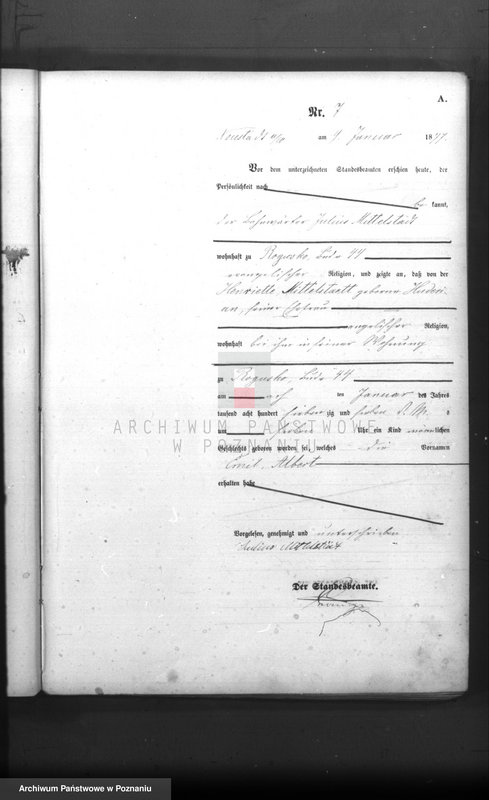 A.
Nr. 7
Neustadt a/W am 9. Januar 1877.
Vor dem unterzeichneten Standesbeamten erschien heute, der
Persönlichkeit nach
be kannt,
der Bahnwärter Julius Mittelstädt
wohnhaft zu Rogusko, Bude 44
evangelischer Religion, und zeigte an, daß von der
Henriette Mittelstaedt geborene
seiner Ehefrau
evangelischer Religion,
wohnhaft bei ihm in seiner Wohnung
zu Rogusko, Bude 44
am ten Januar des Jahres
tausend acht hundert sieben zig und sieben
um Uhr ein Kind männlichen
Geschlechts geboren worden sei, welches die Vornamen
Emil Albert
erhalten habe
Vorgelesen, genehmigt und unterschrieben
Julius Mittelstädt
Der Standesbeamte.
ARCHIWUM PAŃSTWOWE
W POZNANIU
Archiwum Państwowe w Poznaniu